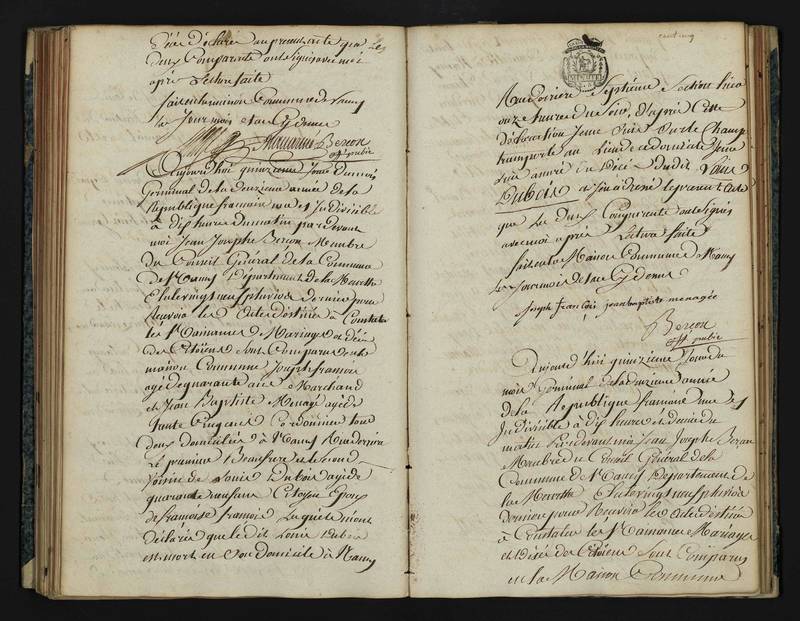 décès déclaré au present acte que
deux Comparants ont signé avec moi
après Lecture faite
fait en la maison Commune de Nancy
les Jour mois et an Cy dessus
Mamimé Berçon
off. public
Aujourd'hui quinzieme Jour du mois
Germinal de la deuxieme année de la
Republique francaise une et Indivisible
à dix heures du matin pardevant
moi Jean Josephe Berçon Membre
du Conseil Général de la Commune
de Nancy Département de la Meurthe
Elu le vingt neuf pluviose dernier pour
Recevoir les Actes destinés à Constater
les Naissances de Mariages et décès
des Citoiens sont Comparus en la
maison Commune Joseph francois
agé de quarante ans Marchand
et Jean Baptiste Menagé agé de
trente Cinq ans Cordonnier tous
deux domiciliés à Nancy
Le premier Beaufrere et le second
Voisin de Louis Dubois agé de
quarante neuf ans Citoyen Epoux
de francoise francois Lesquels m'ont
déclaré que ledit Louis Dubois
est mort en son domicile à Nancy
cent cinq
Septième Section hier à
onze heures du soir, d'après Cette
déclaration Je me suis sur le Champ
transporté au lieu de ce domicile J'ai
été assuré du décès dudit Louis
Dubois et J'en ai dressé le present Acte
que les deux Comparants ont signés
avec moi après Lecture faite
fait en la Maison Commune de Nancy
les Jour mois et an Cy dessus
Joseph francois jean baptiste menagée
Berçon
off. public
Aujourd'hui quinzieme Jour du
mois Germinal de la deuxieme année
de la Republique francaise une et
Indivisible à dix heures et demie du
matin Pardevant moi Jean Josephe Berçon
Membre du Conseil Général de la
Commune de Nancy Département de
la Meurthe Elu le vingt neuf pluviose
dernier pour Recevoir les Actes destinés
à Constater les Naissances Mariages
et décès des Citoiens sont Comparus
en la Maison Commune